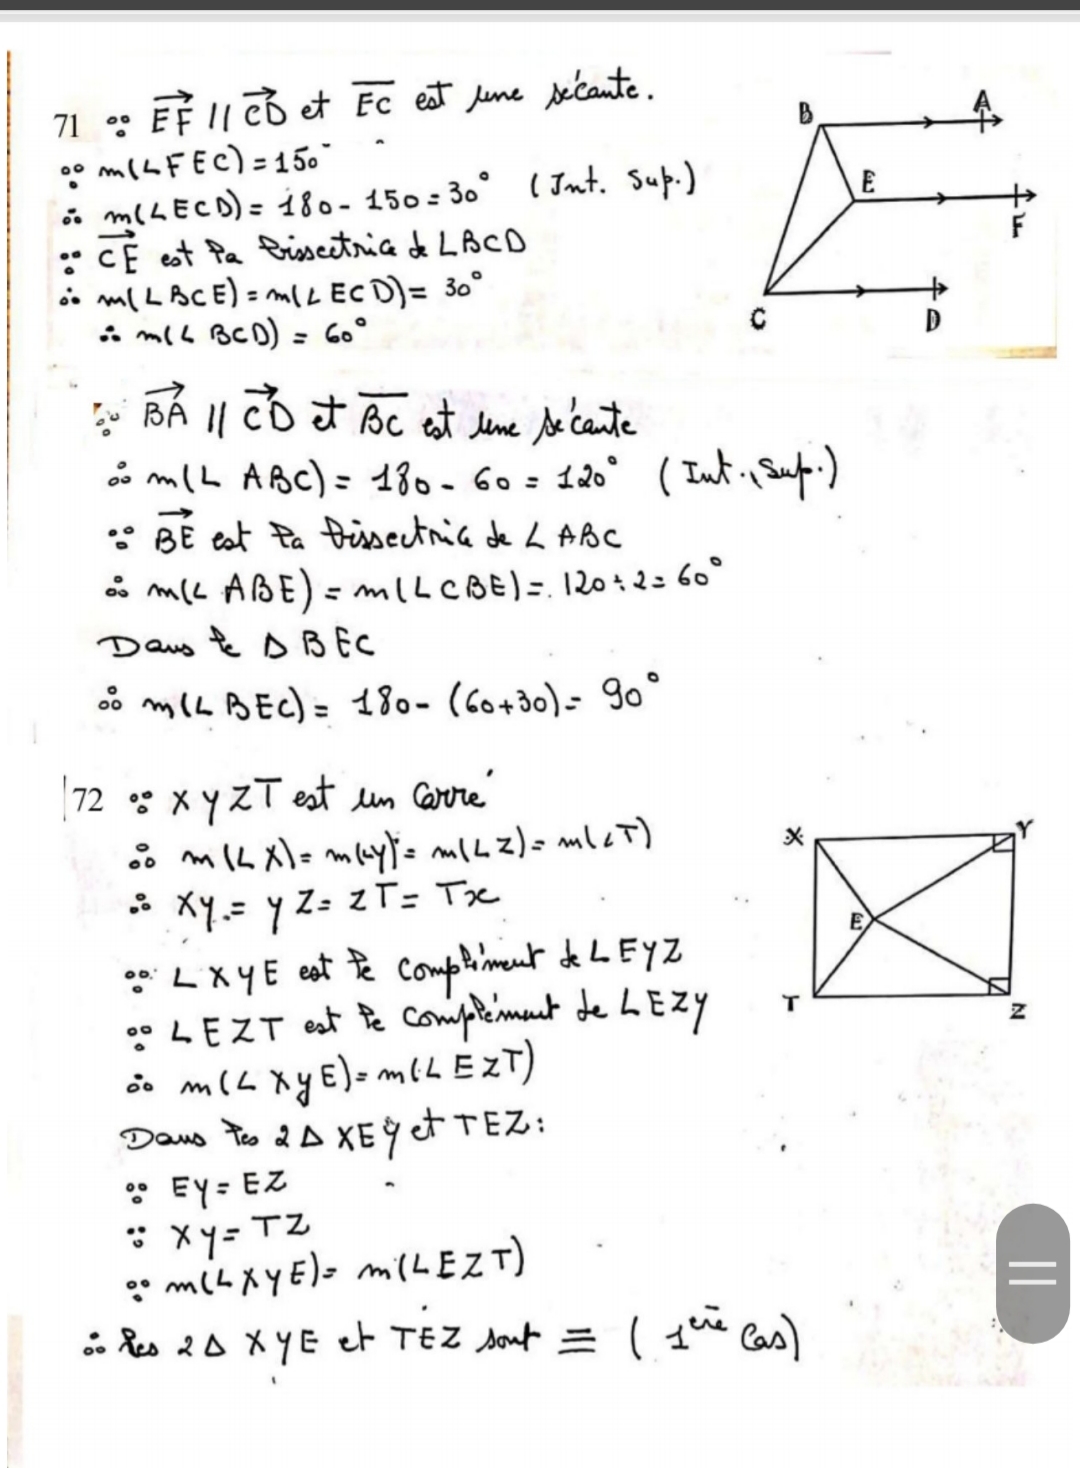 71 ∵ EF // CD et EC est une sécante.
∵ m(∠FEC) = 150°
∴ m(∠ECD) = 180 - 150 = 30° (Int. Sup.)
∵ CE est la bissectrice de ∠BCD
∴ m(∠BCE) = m(∠ECD) = 30°
∴ m(∠BCD) = 60°
B A
E
F
C D
∵ BA // CD et BC est une sécante
∴ m(∠ABC) = 180 - 60 = 120° (Int., Sup.)
∵ BE est la bissectrice de ∠ABC
∴ m(∠ABE) = m(∠CBE) = 120 ÷ 2 = 60°
Dans le Δ BEC
∴ m(∠BEC) = 180 - (60+30) = 90°
72 ∵ XYZT est un Carré
∴ m(∠X) = m(∠y) = m(∠Z) = m(∠T)
∴ Xy = yZ = ZT = Tx
∵ ∠XYE est le Complément de ∠EYZ
∵ ∠EZT est le Complément de ∠EZY
∴ m(∠XyE) = m(∠EZT)
Dans les 2 Δ XEY et TEZ :
∵ EY = EZ
∵ XY = TZ
∵ m(∠XYE) = m(∠EZT)
∴ les 2 Δ XYE et TEZ sont ≡ (1ère Cas)
X Y
E
T Z